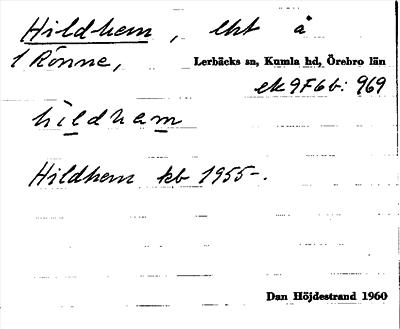 Hildhem, lht å
1 Rönne, Lerbäcks sn, Kumla hd, Örebro län
ek 9F6b: 969
hildham
Hildhem kb 1955-.
Dan Höjdestrand 1960